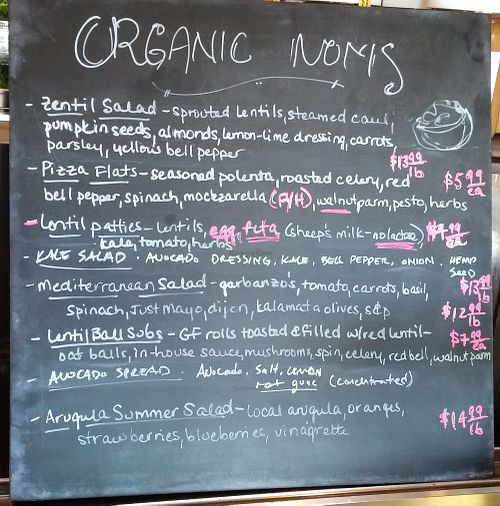 ORGANIC NOMS
- Zentil Salad - sprouted lentils, steamed caul,
pumpkin seeds, almonds, lemon-lime dressing, carrots
parsley, yellow bell pepper $13.99 lb
- Pizza Flats - seasoned polenta, roasted celery, red $5.99 ea
bell pepper, spinach, mockzarella (F/H), walnut parm, pesto, herbs
- Lentil patties - lentils, egg, feta (sheep's milk - no lactose) $4.99 ea
kale, tomato, herbs
- KALE SALAD · AVOCADO DRESSING, KALE, BELL PEPPER, ONION, HEMP SEED
- Mediterranean Salad - garbanzo's, tomato, carrots, basil, $13.99 lb
spinach, Just Mayo, dijon, kalamata olives, s&p $12.99 lb
- Lentil Ball Subs - GF rolls toasted & filled w/red lentil- $7.99 ea
oat balls, in-house sauce, mushrooms, spin, celery, red bell, walnut parm
- AVOCADO SPREAD · Avocado, Salt, Lemon
not guac (concentrated)
- Arugula Summer Salad - local arugula, oranges, $14.99 lb
strawberries, blueberries, vinagrette